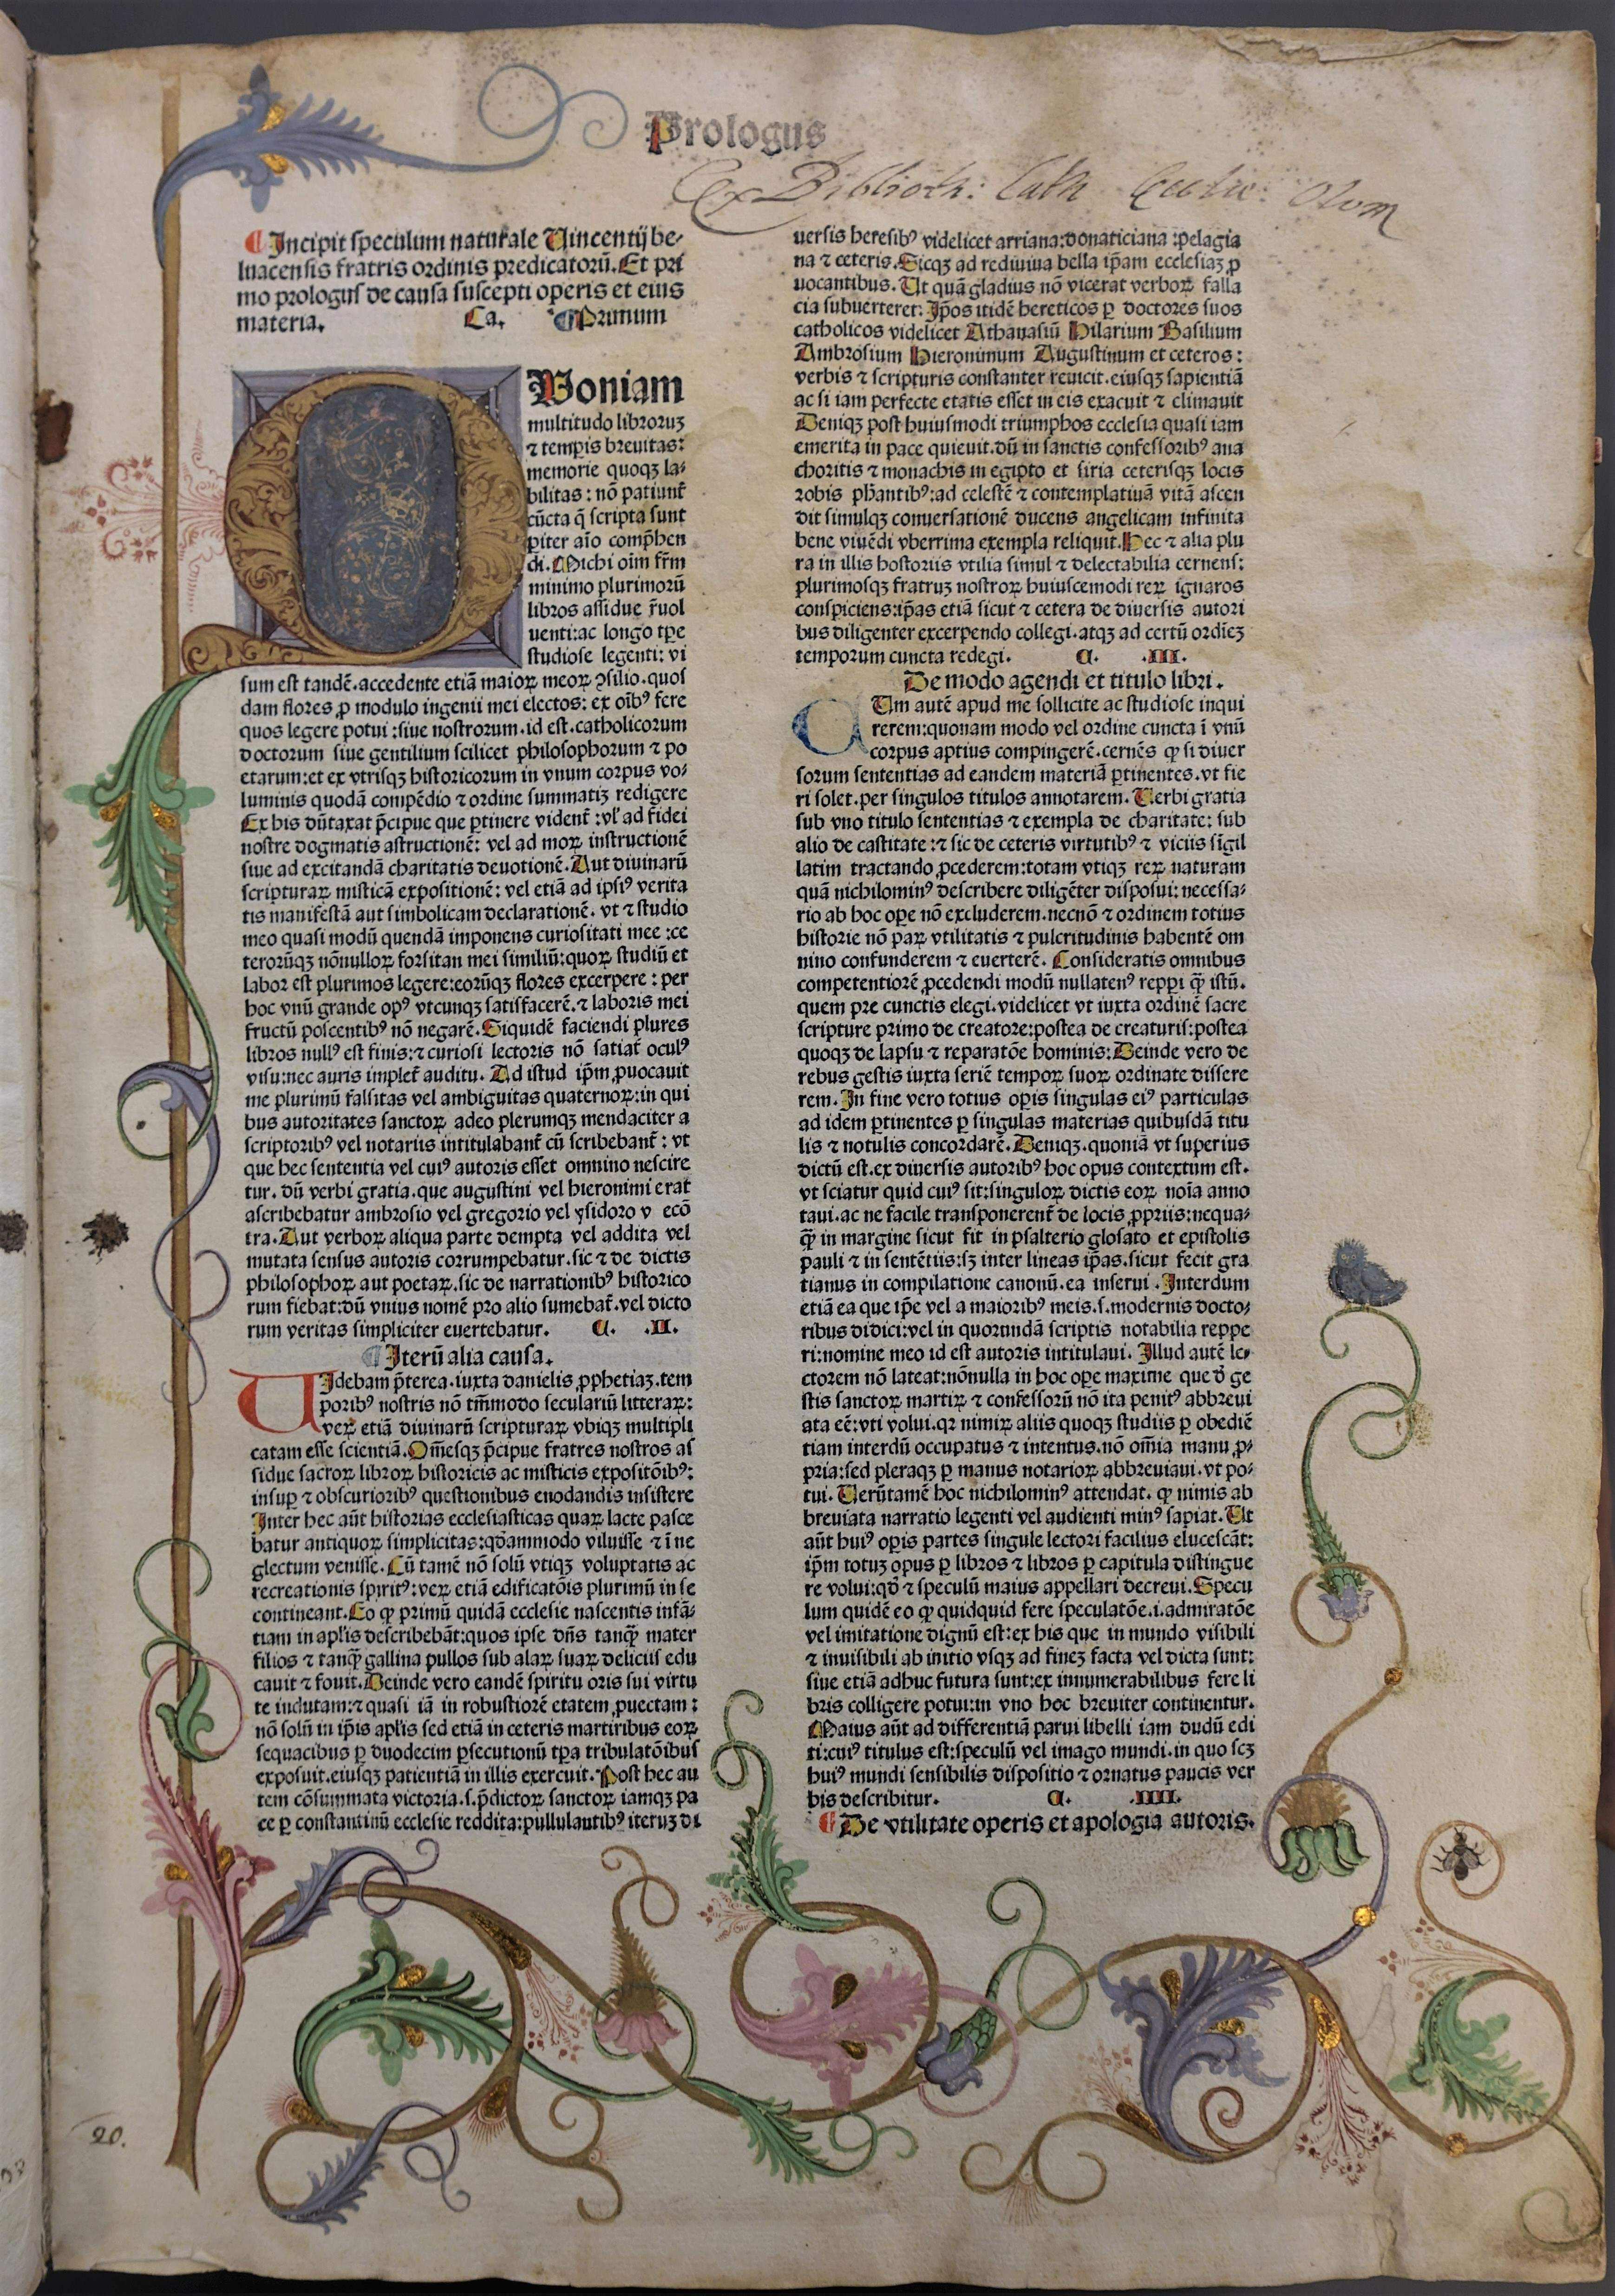 Prologus
Ex Biblioth: Cath Eccliae: Olom
¶ Incipit speculum naturale Uincentij be-
luacensis fratris ordinis predicatorū. Et pri
mo prologus de causa suscepti operis et eius
materia. Ca. ¶ Primum
Quoniam
multitudo libroruꝫ
⁊ temꝑis breuitas:
memorie quoqꝫ la-
bilitas: nō patiunt̄
cūcta q̄ scripta sunt
ꝑiter aīo comp̄hen
di. Michi oīm fr̄m
minimo plurimorū
libros assidue r̄uol
uenti: ac longo tꝑe
studiose legenti: vi
sum est tandē. accedente etiā maioꝝ meoꝝ ꝯsilio. quos
dam flores ꝓ modulo ingenii mei electos: ex oībꝰ fere
quos legere potui: siue nostrorum. id est. catholicorum
doctorum siue gentilium scilicet philosophorum ⁊ po
etarum: et ex vtrisqꝫ historicorum in vnum corpus vo-
luminis quodā compēdio ⁊ ordine summatiꝫ redigere
Ex his dūtaxat p̄cipue que ꝑtinere vident̄: vl' ad fidei
nostre dogmatis astructionē: vel ad moꝝ instructionē
siue ad excitandā charitatis deuotionē. Aut diuinarū
scripturaꝝ misticā expositionē: vel etiā ad ipsiꝰ verita
tis manifestā aut simbolicam declarationē. vt ⁊ studio
meo quasi modū quendā imponens curiositati mee: ce
terorūqꝫ nōnulloꝝ forsitan mei similiū: quoꝝ studiū et
labor est plurimos legere: eorūqꝫ flores excerpere: per
hoc vnū grande opꝰ vtcunqꝫ satisfacerē. ⁊ laboris mei
fructū poscentibꝰ nō negarē. Siquidē faciendi plures
libros nullꝰ est finis: ⁊ curiosi lectoris nō satiat̄ oculꝰ
visu: nec auris implet̄ auditu. Ad istud ip̄m ꝓuocauit
me plurimū falsitas vel ambiguitas quaternoꝝ: in qui
bus autoritates sanctoꝝ adeo plerumqꝫ mendaciter a
scriptoribꝰ vel notariis intitulabant̄ cū scribebant̄: vt
que hec sententia vel cuiꝰ autoris esset omnino nescire
tur. dū verbi gratia. que augustini vel hieronimi erat
ascribebatur ambrosio vel gregorio vel ysidoro v ecō
tra. Aut verboꝝ aliqua parte dempta vel addita vel
mutata sensus autoris corrumpebatur. sic ⁊ de dictis
philosophoꝝ aut poetaꝝ. sic de narrationibꝰ historico
rum fiebat: dū vnius nomē pro alio sumebat̄. vel dicto
rum veritas simpliciter euertebatur. C. .II.
¶ Iterū alia causa.
UIdebam p̄terea. iuxta danielis ꝓphetiaꝫ. tem
poribꝰ nostris nō tm̄modo seculariū litteraꝝ:
veꝝ etiā diuinarū scripturaꝝ vbiqꝫ multipli
catam esse scientiā. Om̄esqꝫ p̄cipue fratres nostros as
sidue sacroꝝ libroꝝ historicis ac misticis expositōibꝰ:
insuꝑ ⁊ obscurioribꝰ questionibus enodandis insistere
Inter hec aūt historias ecclesiasticas quaꝝ lacte pasce
batur antiquoꝝ simplicitas: qd̄ammodo viluisse ⁊ ī ne
glectum venisse. Cū tamē nō solū vtiqꝫ voluptatis ac
recreationis spiritꝰ: veꝝ etiā edificatōis plurimū in se
contineant. Eo ꝙ primū quidā ecclesie nascentis infā-
tiam in apl'is describebāt: quos ipse dn̄s tanq̄ mater
filios ⁊ tanq̄ gallina pullos sub alaꝝ suaꝝ deliciis edu
cauit ⁊ fouit. Deinde vero eandē spiritu oris sui virtu
te indutam: ⁊ quasi iā in robustiorē etatem ꝓuectam:
nō solū in ip̄is apl'is sed etiā in ceteris martiribus eoꝝ
sequacibus ꝑ duodecim ꝑsecutionū tꝑa tribulatōibus
exposuit. eiusqꝫ patientiā in illis exercuit. Post hec au
tem cōsummata victoria. s. p̄dictoꝝ sanctoꝝ iamqꝫ pa
ce ꝑ constantinū ecclesie reddita: pullulantibꝰ iteruꝫ di
uersis heresibꝰ videlicet arriana: donaticiana: pelagia
na ⁊ ceteris. Sicqꝫ ad rediuiua bella ip̄am ecclesiaꝫ ꝓ
uocantibus. Ut quā gladius nō vicerat verboꝝ falla
cia subuerteret: Ip̄os itidē hereticos ꝑ doctores suos
catholicos videlicet Athanasiū Hilarium Basilium
Ambrosium Hieronimum Augustinum et ceteros:
verbis ⁊ scripturis constanter reuicit. eiusqꝫ sapientiā
ac si iam perfecte etatis esset in eis exacuit ⁊ climauit
Deniqꝫ post huiusmodi triumphos ecclesia quasi iam
emerita in pace quieuit. dū in sanctis confessoribꝰ ana
choritis ⁊ monachis in egipto et siria ceterisqꝫ locis
robis ph̄antibꝰ: ad celestē ⁊ contemplatiuā vitā ascen
dit simulqꝫ conuersationē ducens angelicam infinita
bene viuēdi vberrima exempla reliquit. Hec ⁊ alia plu
ra in illis hostoriis vtilia simul ⁊ delectabilia cernens:
plurimosqꝫ fratruꝫ nostroꝝ huiuscemodi reꝝ ignaros
conspiciens: ip̄as etiā sicut ⁊ cetera de diuersis autori
bus diligenter excerpendo collegi. atqꝫ ad certū ordīeꝫ
temporum cuncta redegi. C. .III.
De modo agendi et titulo libri.
CUm autē apud me sollicite ac studiose inqui
rerem: quonam modo vel ordine cuncta ī vnū
corpus aptius compingerē. cernēs ꝙ si diuer
sorum sententias ad eandem materiā ꝑtinentes. vt fie
ri solet. per singulos titulos annotarem. Uerbi gratia
sub vno titulo sententias ⁊ exempla de charitate: sub
alio de castitate: ⁊ sic de ceteris virtutibꝰ ⁊ viciis sīgil
latim tractando ꝓcederem: totam vtiqꝫ reꝝ naturam
quā nichilominꝰ describere diligēter disposui: necessa-
rio ab hoc oꝑe nō excluderem. necnō ⁊ ordinem totius
historie nō paꝝ vtilitatis ⁊ pulcritudinis habentē om
nino confunderem ⁊ euerterē. Consideratis omnibus
competentiorē ꝓcedendi modū nullatenꝰ repꝑi q̄ istū.
quem pre cunctis elegi. videlicet vt iuxta ordinē sacre
scripture primo de creatore: postea de creaturis: postea
quoqꝫ de lapsu ⁊ reparatōe hominis: Deinde vero de
rebus gestis iuxta seriē tempoꝝ suoꝝ ordinate dissere
rem. In fine vero totius oꝑis singulas eiꝰ particulas
ad idem ꝑtinentes ꝑ singulas materias quibusdā titu
lis ⁊ notulis concordarē. Deniqꝫ. quoniā vt superius
dictū est. ex diuersis autoribꝰ hoc opus contextum est.
vt sciatur quid cuiꝰ sit: singuloꝝ dictis eoꝝ noīa anno
taui. ac ne facile transponerent̄ de locis ꝓpriis: nequa-
q̄ in margine sicut fit in psalterio glosato et epistolis
pauli ⁊ in sentētiis: sꝫ inter lineas ip̄as. sicut fecit gra
tianus in compilatione canonū. ea inserui. Interdum
etiā ea que ip̄e vel a maioribꝰ meis. s. modernis docto-
ribus didici: vel in quorundā scriptis notabilia reppe
ri: nomine meo id est autoris intitulaui. Illud autē le-
ctorem nō lateat: nōnulla in hoc oꝑe maxime que d̄ ge
stis sanctoꝝ martiꝝ ⁊ confessorū nō ita penitꝰ abbreui
ata eē: vti volui. qꝛ nimiꝝ aliis quoqꝫ studiis ꝑ obediē
tiam interdū occupatus ⁊ intentus. nō om̄ia manu ꝓ-
pria: sed pleraqꝫ ꝑ manus notarioꝝ abbreuiaui. vt po-
tui. Uerūtamē hoc nichilominꝰ attendat. ꝙ nimis ab
breuiata narratio legenti vel audienti minꝰ sapiat. Ut
aūt huiꝰ oꝑis partes singule lectori facilius elucescāt:
ip̄m totuꝫ opus ꝑ libros ⁊ libros ꝑ capitula distingue
re volui: qd̄ ⁊ speculū maius appellari decreui. Specu
lum quidē eo ꝙ quidquid fere speculatōe. i. admiratōe
vel imitatione dignū est: ex his que in mundo visibili
⁊ inuisibili ab initio vsqꝫ ad fineꝫ facta vel dicta sunt:
siue etiā adhuc futura sunt: ex innumerabilibus fere li
bris colligere potui: in vno hoc breuiter continentur.
Maius aūt ad differentiā parui libelli iam dudū edi
ti: cuiꝰ titulus est: speculū vel imago mundi. in quo scꝫ
huiꝰ mundi sensibilis dispositio ⁊ ornatus paucis ver
bis describitur. C. .IIII.
¶ De vtilitate operis et apologia autoris.
20.